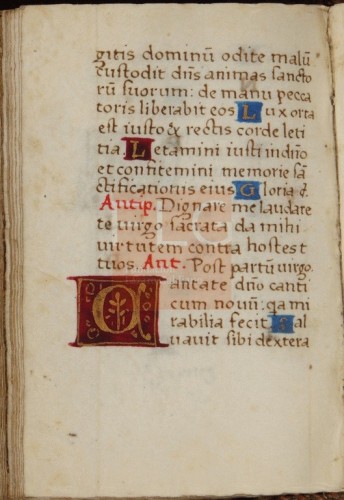 gitis dominū odite malū
custodit dñs animas sancto
rū suorum: de manu pecca
toris liberabit eos Lux orta
est iusto & rectis corde leti
tia Letamini iusti in dño
et confitemini memorie sā
ctificationis eius Gloria
Antip. Dignare me laudare
te virgo sacrata da mihi
virtutem contra hostes t
tuos. Ant. Post partū virgo
Cantate dño canti
cum novū: qa mi
rabilia fecit Sal
vavit sibi dextera